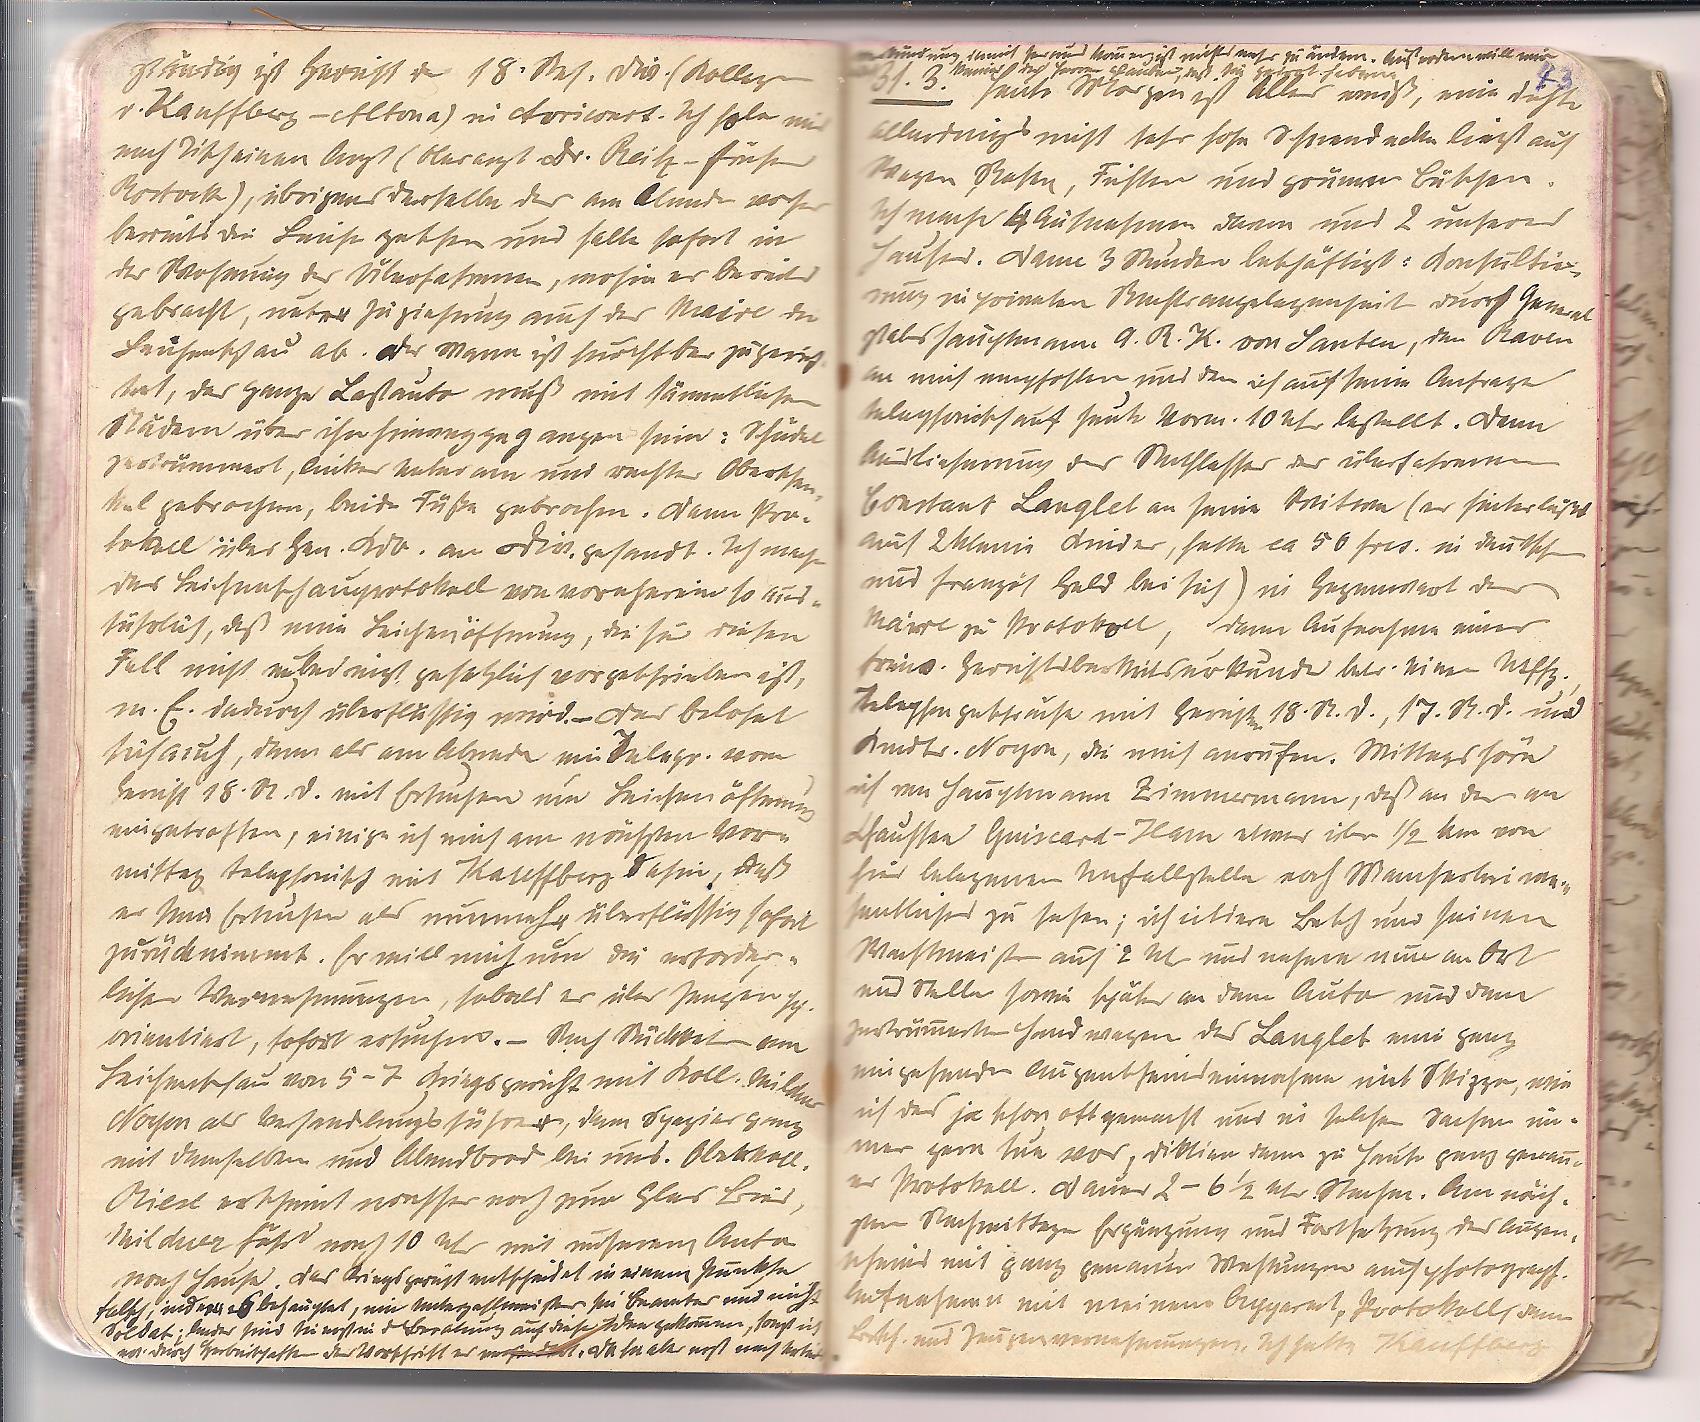 ständig ist Gericht der 18. Res. Div. (Kollege
v. Hauffberg – Altona) in Avricourt. Ich hole mir
noch hinein Arzt (Oberarzt Dr. Reitz – früher
Rostock), übrigens derselbe der am Abend vorher
bereits die Leiche gesehen und halte sofort in
der Wohnung des Überfahrenen, wohin er bereits
gebracht, unter Zuziehung auch des Maire die
Leichenschau ab. Der Mann ist furchtbar zugerich-
tet, das ganze Lastauto muß mit sämmtlichen
Rädern über ihn hinweggegangen sein: Schädel
zertrümmert, linker Unterarm und rechter Oberschen-
kel gebrochen, beide Füße gebrochen. Dann Pro-
tokoll über Gen. Kdo. an Div. gesandt. Ich mache
das Leichenschauprotokoll von vornherein so aus-
führlich, daß eine Leichenöffnung, die für diesen
Fall nicht unbedingt gesetzlich vorgeschrieben ist,
m. E. dadurch überflüssig wird. – Das belohnt
sich auch, denn als am Abend ein Telegr. vom
Gericht 18. R. D. mit Ersuchen um Leichenöffnung
eingetroffen, einige ich mich am nächsten Vor-
mittag telephonisch mit Hauffberg dahin, daß
er sein Ersuchen als nunmehr überflüssig sofort
zurücknimmt. Er will mich um die erforder-
lichen Vernehmungen, sobald er über Zeugen pp.
orientiert, sofort ersuchen. – Nach Rückkehr von
Leichenschau von 5–7 Kriegsgericht mit Koll. Mildner
Noyon als Verhandlungsführer, dann Spaziergang
mit demselben und Abendbrod bei uns.
Riese erscheint nachher noch zum Glas Bier,
Mildner fährt nach 10 Uhr mit unserem Auto
nach Hause. Das Kriegsgericht entscheidet in einem Punkte
falsch, indem es behauptet, ein Unterzahlmeister sei Beamter und nicht
Soldat; leider sind sie erst in d. Beratung auf diese Idee gekommen, sonst ich
sie durch Herbeischaffen der Vorschrift Da sie aber erst nach
kündung damit herauskommen, ist nichts mehr zu ändern. Außerdem will mir
31. 3. Heute Morgen ist Alles weiß, eine dichte
allerdings nicht sehr hohe Schneedecke liegt auf
Wegen, Rasen, Fichten und grünen Büschen.
Ich mache 4 Aufnahmen davon und 2 unseres
Hauses. Dann 3 Stunden beschäftigt: Konsultie-
rung in privaten Rechtsangelegenheit durch General
stabshauptmann A. O. K. von Santen, den Raven
an mich empfohlen und den ich auf seine Anfrage
telephonisch auf heute Vorm. 10 Uhr bestellt. Dann
Auslieferung des Nachlasses des überfahrenen
Constant Langlet an seine Witwe (er hinterläßt
auch 2 kleine Kinder, hatte ca 50 frcs. in deutsch
und französ. Geld bei sich) in Gegenwart des
Maire zu Protokoll, dann Aufnahme einer
freiw. Gerichtsbarkeitsurkunde betr. einen Uffz.,
Telephongespräche mit Gerichten 18. R. D., 17. R. D. und
Kmdtr. Noyon, die mich anrufen. Mittags höre
ich von Hauptmann Zimmermann, daß an der an
Chaussee Guiscard–Ham etwas über 1/2 km von
hier belegenen Unfallstelle noch Mancherlei we-
sentliches zu sehen; ich citiere Betsch und seinen
Wachtmeister auf 2 Uhr und nehme nun an Ort
und Stelle sowie später an dem Auto und dem
zertrümmerten Handwagen des Langlet eine ganz
eingehende Augenscheinseinnahme mit Skizze, wie
ich das ja schon oft gemacht und in solchen Sachen im-
mer gern tue vor, diktiere dann zu Hause ganz genau-
es Protokoll. Dauer 2 – 6 1/2 Uhr Nachm. Am näch-
sten Nachmittage Ergänzung und Fortsetzung des Augen-
scheins mit ganz genauen Messungen auch photograph.
Aufnahmen mit meinem Apparat, Protokolls dann
und Zeugenvernehmungen. Ich hatte Hauffberg